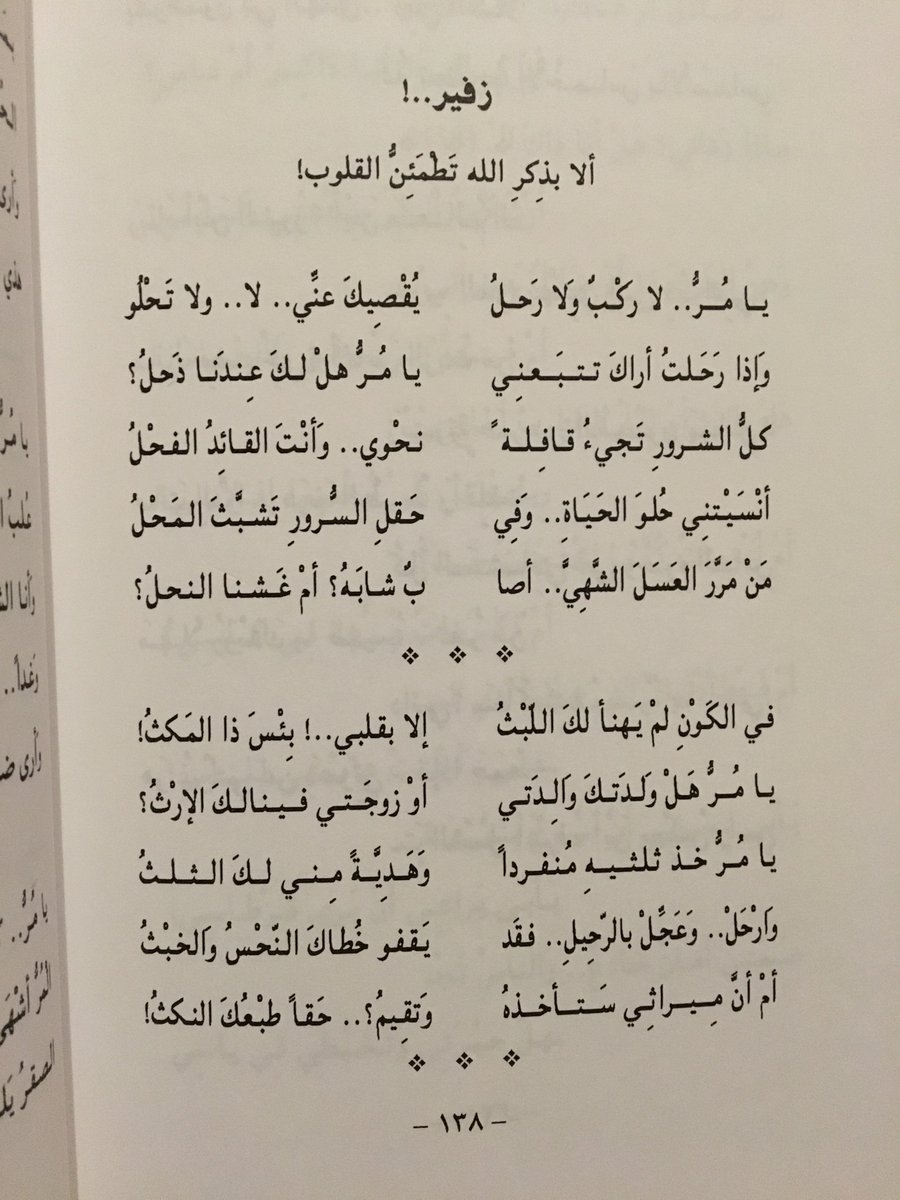 زفير..!
ألا بذِكرِ الله تَطْمَئِنُّ القلوب!
يـا مُـرُّ.. لا ركْـبٌ وَلا رَحـلُ يُقْصِيكَ عنِّي.. لا.. ولا تَحْلُو
وَإذا رَحَلتُ أراكَ تـتـبَـعنِي يـا مُـرُّ هلْ لـكَ عِندَنَـا ذَحلُ؟
كلُّ الشـرورِ تَجيءُ قـافِـلـةً نحْوي.. وَأنْتَ القـائِدُ الفحْلُ
أنْسَيْتنِي حُلوَ الحَيَـاةِ.. وَفِي حَـقلِ السُّـرورِ تَشبَّثَ المَحْلُ
مَنْ مَرَّرَ العَسَلَ الشَّهِيَّ.. أصا بٌ شابَهُ؟ أمْ غَـشنـا النحلُ؟
في الكَوْنِ لمْ يَهنأ لكَ اللّبْثُ إلا بقلبي..! بِئْسَ ذا المَكثُ!
يـا مُـرُّ هَلْ وَلدَتـكَ وَالِدَتي أوْ زوجَـتـي فـيـنالـكَ الإرْثُ؟
يـا مُرُّ خذ ثلثـيـهِ مُنفـرداً وَهَدِيَّـةً مِـنـي لـكَ الـثـلـثُ
وَارْحَلْ.. وَعَجِّلْ بالرّحِيلِ.. فقَد يَـقفو خُطاكَ النّحْسُ وَالخبْثُ
أمْ أنَّ مِـيـراثِي سَـتـأخـذهُ وَتقِيمُ؟.. حَقاً طبْعُكَ النكثُ!
– ١٣٨ –